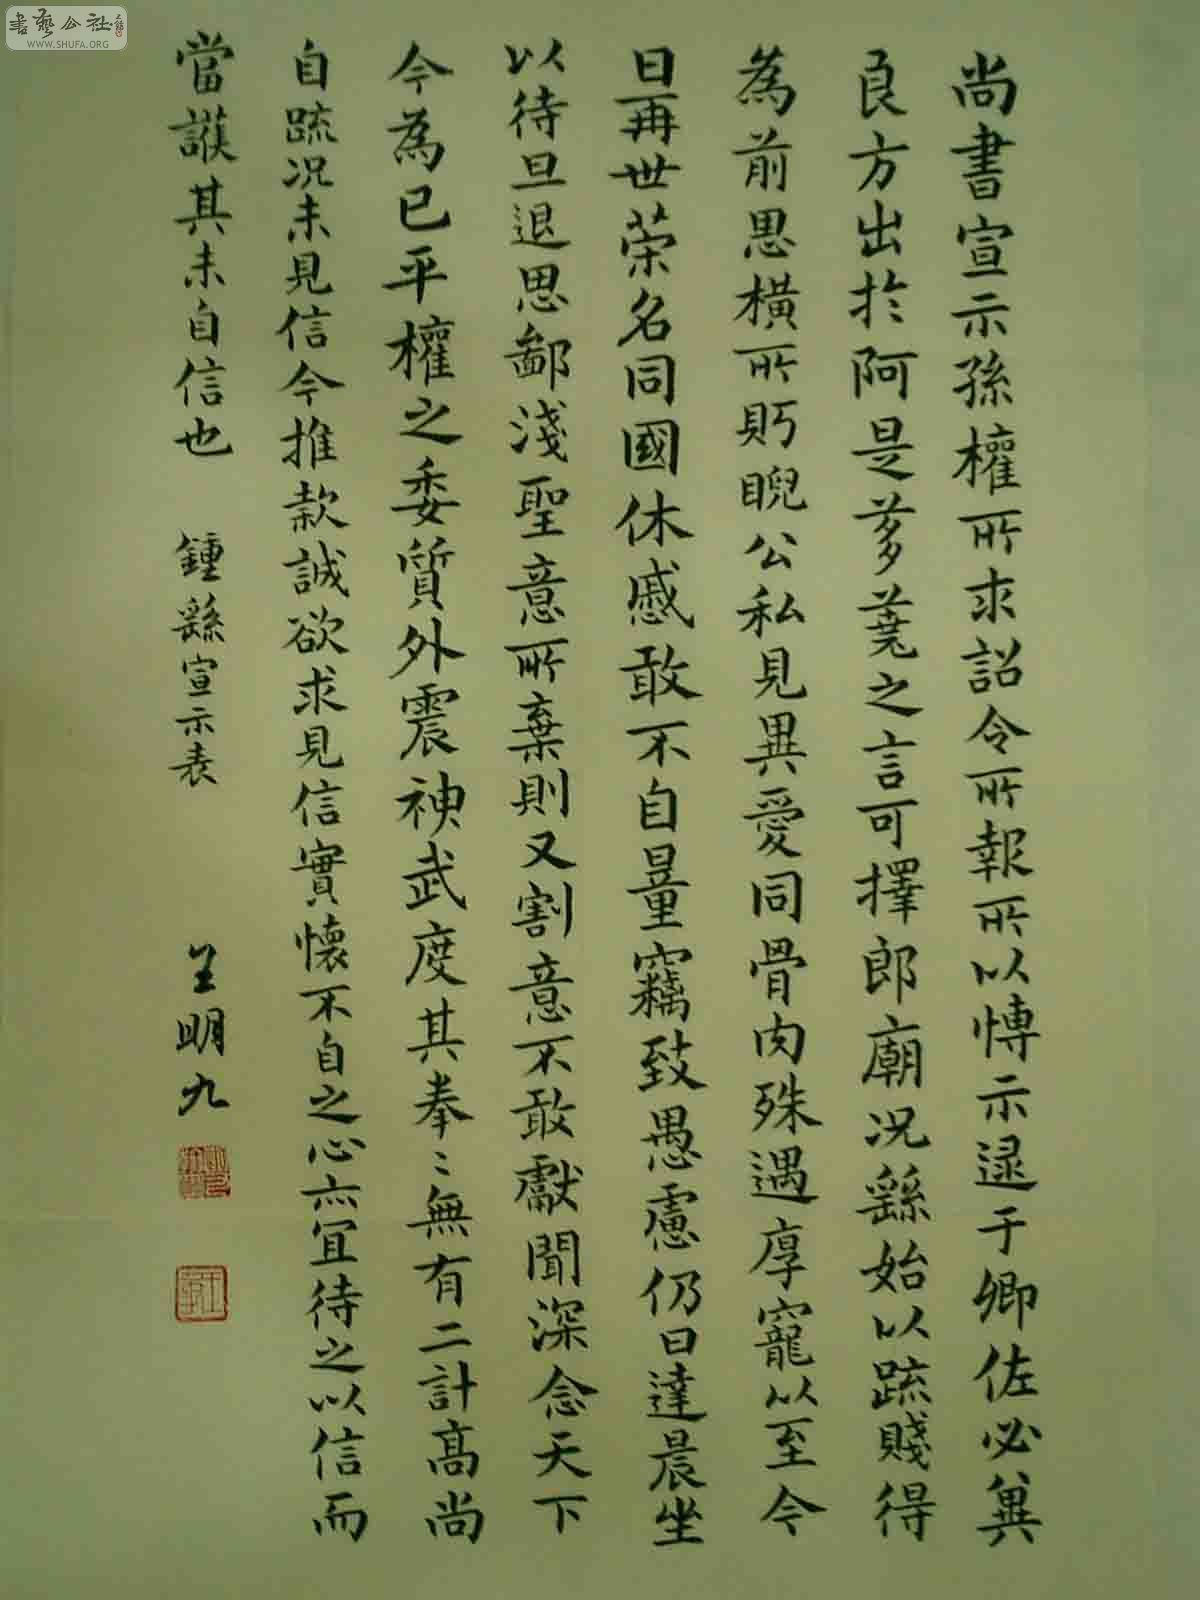 書藝公社
WWW.SHUFA.ORG
尚書宣示孫權所求詔令所報所以博示逯于卿佐必冀
良方出於阿是芻蕘之言可擇郎廟况繇始以疏賤得
為前恩橫所眄睨公私見異愛同骨肉殊遇厚寵以至今
日再世荣名同國休戚敢不自量竊致愚慮仍日達晨坐
以待旦退思鄙淺聖意所棄則又割意不敢獻聞深念天下
今為已平權之委質外震神武度其拳〻無有二計高尚
自疏况未見信今推款誠欲求見信實懷不自之心亦宜待之以信而
當護其未自信也 鍾繇宣示表 王明九